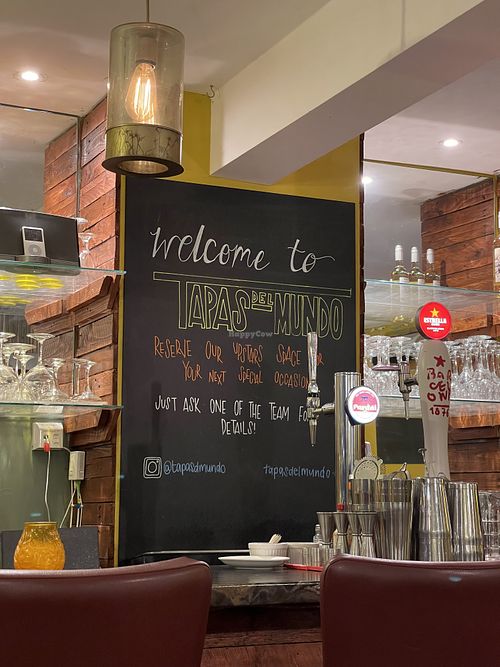 welcome to
TAPAS DEL MUNDO
HappyCow
RESERVE OUR UPSTAIRS SPACE
YOUR NEXT SPECIAL OCCASION
JUST ASK ONE OF THE TEAM
DETAILS!
@tapasdmundo
tapasdelmundo
ESTRELLA
Poretti
BARCELONA
1876